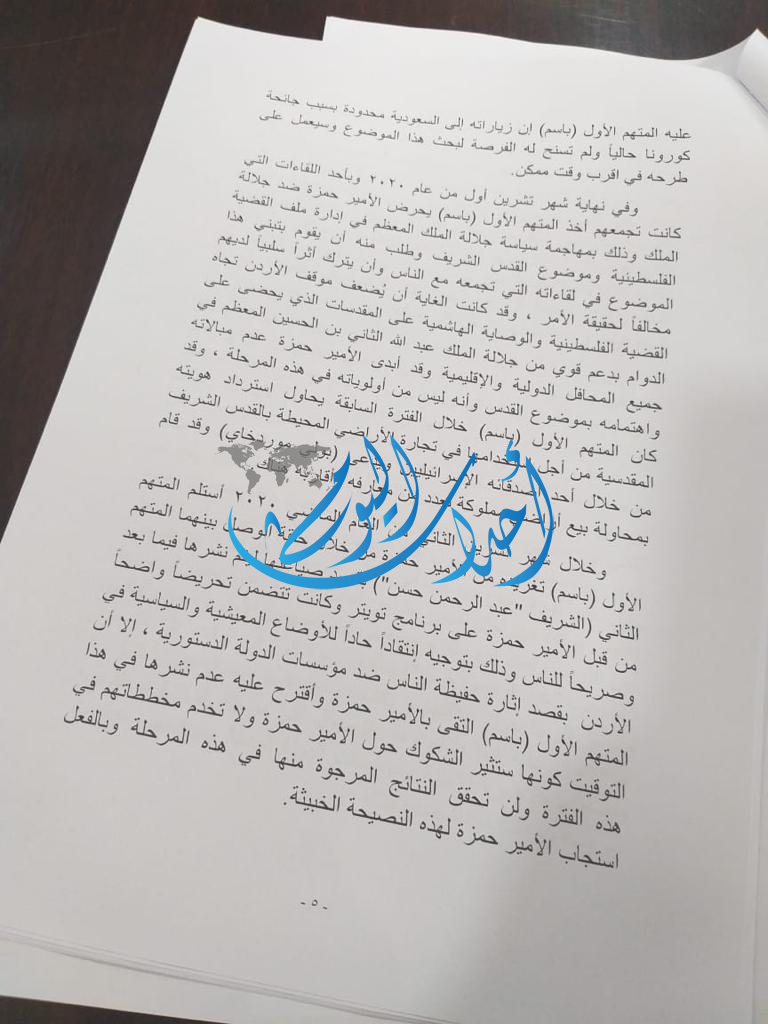 عليه المتهم الأول (باسم) إن زياراته إلى السعودية محدودة بسبب جائحة
كورونا حالياً ولم تسنح له الفرصة لبحث هذا الموضوع وسيعمل على
طرحه في اقرب وقت ممكن.
وفي نهاية شهر تشرين أول من عام ٢٠٢٠ وبأحد اللقاءات التي
كانت تجمعهم أخذ المتهم الأول (باسم) يحرض الأمير حمزة ضد جلالة
الملك وذلك بمهاجمة سياسة جلالة الملك المعظم في إدارة ملف القضية
الفلسطينية وموضوع القدس الشريف وطلب منه أن يقوم بتبني هذا
الموضوع في لقاءاته التي تجمعه مع الناس وأن يترك أثراً سلبياً لديهم
مخالفاً لحقيقة الأمر ، وقد كانت الغاية أن يُضعف موقف الأردن تجاه
القضية الفلسطينية والوصاية الهاشمية على المقدسات الذي يحضى على
الدوام بدعم قوي من جلالة الملك عبد الله الثاني بن الحسين المعظم في
جميع المحافل الدولية والإقليمية وقد أبدى الأمير حمزة عدم مبالاته
واهتمامه بموضوع القدس وأنه ليس من أولوياته في هذه المرحلة ، وقد
كان المتهم الأول (باسم) خلال الفترة السابقة يحاول استرداد هويته
المقدسية من أجل استخدامها في تجارة الأراضي المحيطة بالقدس الشريف
من خلال أحد أصدقائه الإسرائيليين ويدعى (بولي موردخاي) وقد قام
بمحاولة بيع أراضي مملوكة لعدد من معارفه وأقاربه هناك.
وخلال شهر تشرين الثاني من العام الماضي ٢٠٢٠ أستلم المتهم
الأول (باسم) تغريدة من الأمير حمزة من خلال حلقة الوصل بينهما المتهم
الثاني (الشريف "عبد الرحمن حسن") بقصد صياغتها ليتم نشرها فيما بعد
من قبل الأمير حمزة على برنامج تويتر وكانت تتضمن تحريضاً واضحاً
وصريحاً للناس وذلك بتوجيه إنتقاداً حاداً للأوضاع المعيشية والسياسية في
الأردن بقصد إثارة حفيظة الناس ضد مؤسسات الدولة الدستورية ، إلا أن
المتهم الأول (باسم) التقى بالأمير حمزة وأقترح عليه عدم نشرها في هذا
التوقيت كونها ستثير الشكوك حول الأمير حمزة ولا تخدم مخططاتهم في
هذه الفترة ولن تحقق النتائج المرجوة منها في هذه المرحلة وبالفعل
استجاب الأمير حمزة لهذه النصيحة الخبيثة.
- ٥ -
أحداث اليوم